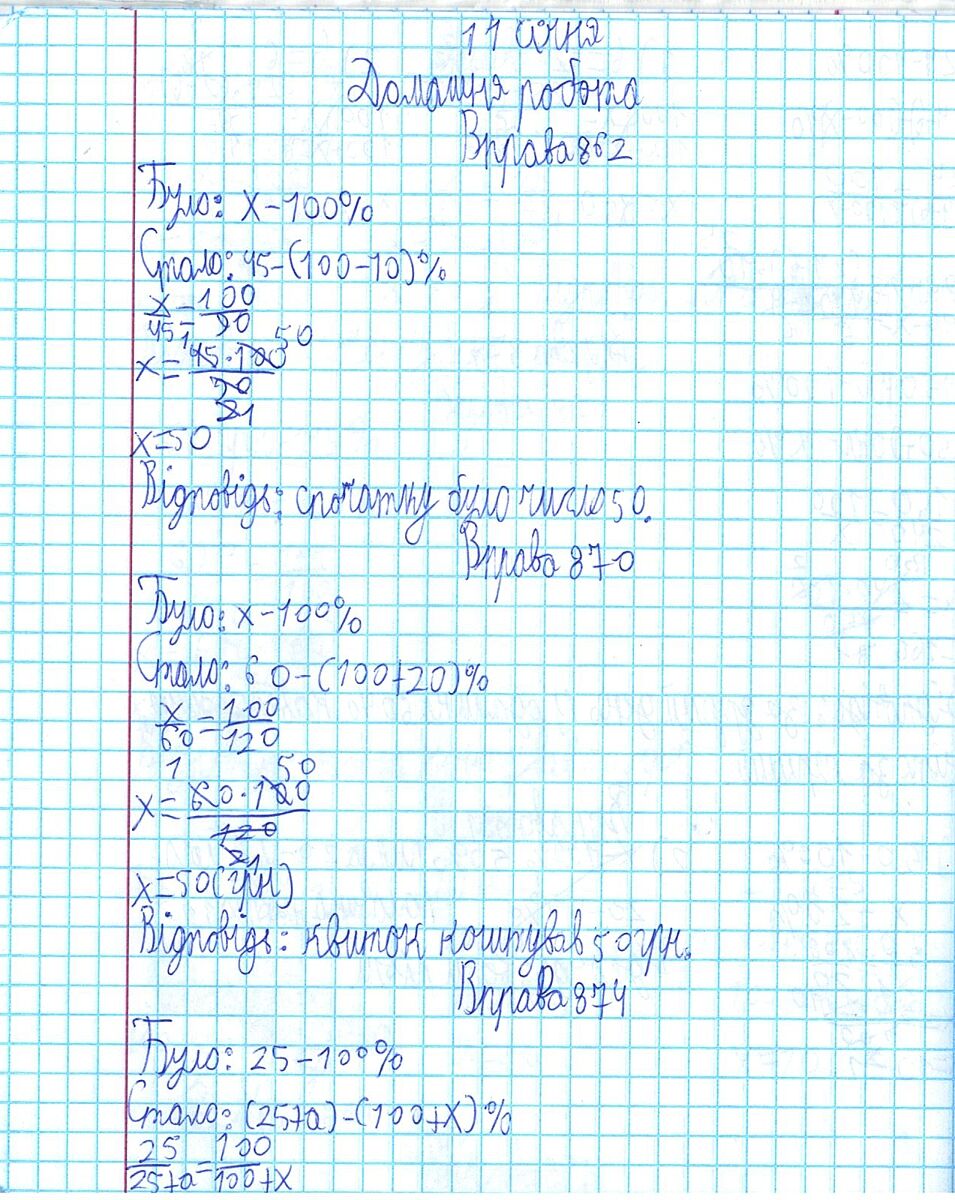 11 січня
Домашня робота
Вправа 862
Було: x – 100%
Стало: 45 – (100 – 10)%
x/45 = 100/90
x = 45 · 100/90 1 50 2 1
x = 50
Відповідь: спочатку було число 50.
Вправа 870
Було: x – 100%
Стало: 60 – (100 + 20)%
x/60 = 100/120
1 50
x = 60 · 100/120
2 1
x = 50 (грн)
Відповідь: квиток коштував 50 грн.
Вправа 874
Було: 25 – 100%
Стало: (25 + a) – (100 + x)%
25/25 + a = 100/100 + x